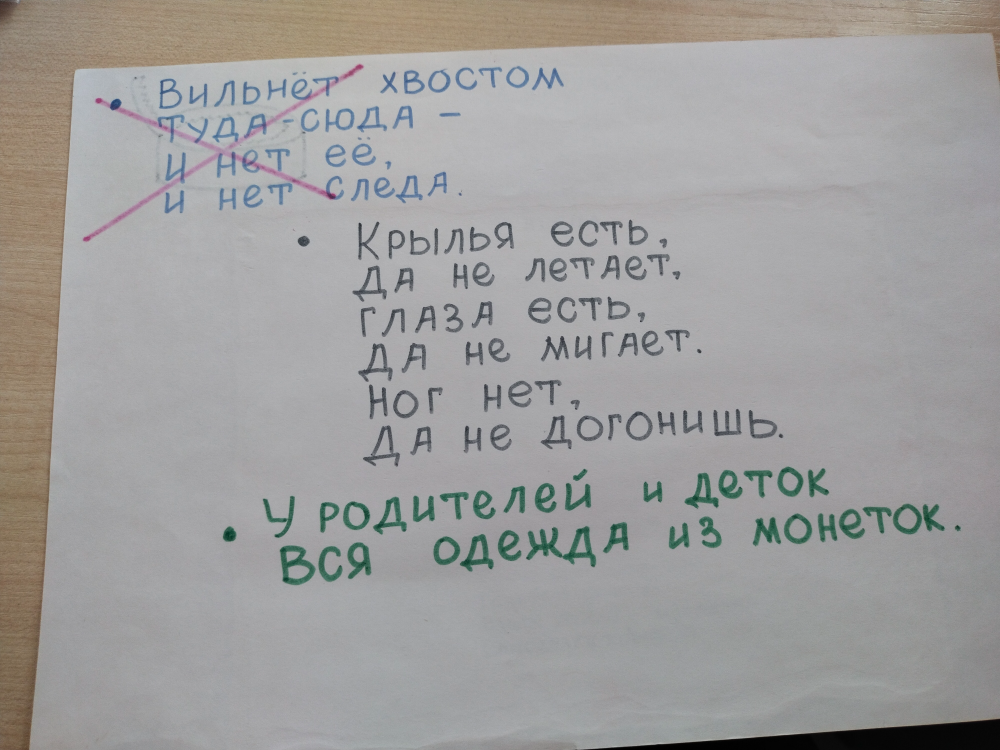 • Вильнёт хвостом
туда-сюда –
и нет её,
и нет следа.
• Крылья есть,
да не летает,
глаза есть,
да не мигает.
Ног нет,
да не догонишь.
• У родителей и деток
вся одежда из монеток.